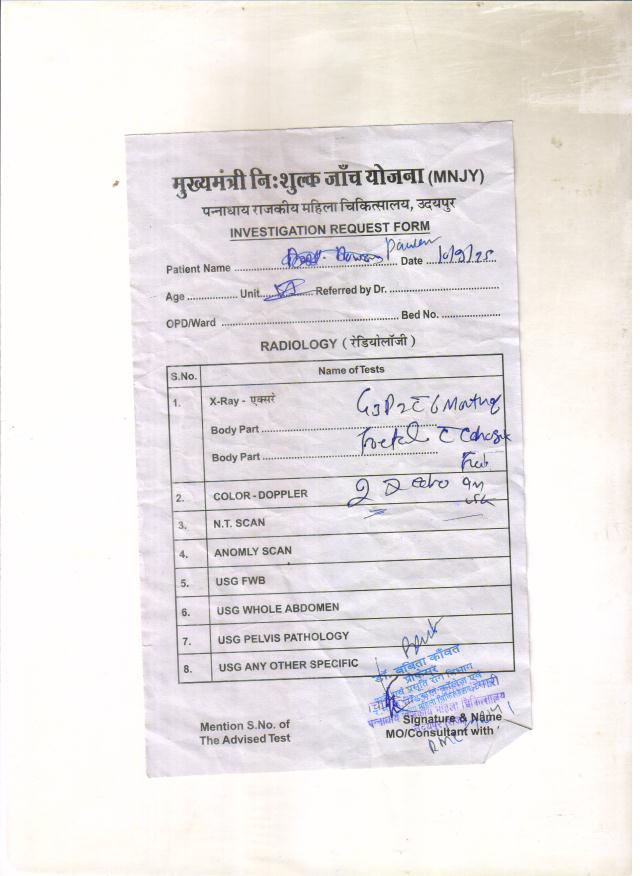 मुख्यमंत्री निःशुल्क जाँच योजना (MNJY)
पन्नाधाय राजकीय महिला चिकित्सालय, उदयपुर
INVESTIGATION REQUEST FORM
Patient Name ........ Date 10/9/25
Age ........ Unit ........ Referred by Dr. ........
OPD/Ward ........ Bed No. ........
RADIOLOGY ( रेडियोलॉजी )
S.No. Name of Tests
1. X-Ray - एक्सरे G3P2 C 6 Month
Body Part ........ Foetal C
Body Part ........
2. COLOR - DOPPLER 2 D echo
3. N.T. SCAN
4. ANOMLY SCAN
5. USG FWB
6. USG WHOLE ABDOMEN
7. USG PELVIS PATHOLOGY
8. USG ANY OTHER SPECIFIC
डॉ. बबिता काँवत
पन्नाधाय राजकीय महिला चिकित्सालय
Mention S.No. of
The Advised Test
Signature & Name
MO/Consultant with
RMC